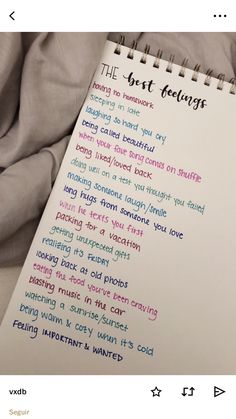 THE best feelings
having no homework
sleeping in late
laughing so hard you cry
being called beautiful
when your fave song comes on shuffle
being liked/loved back
doing well on a test you thought you failed
making someone laugh/smile
long hugs from someone you love
when he texts you first
packing for a vacation
getting unexpected gifts
realizing it's FRIDAY
looking back at old photos
eating the food you've been craving
blasting music in the car
watching a sunrise/sunset
being warm & cozy when it's cold
feeling IMPORTANT & WANTED
vxdb
Seguir